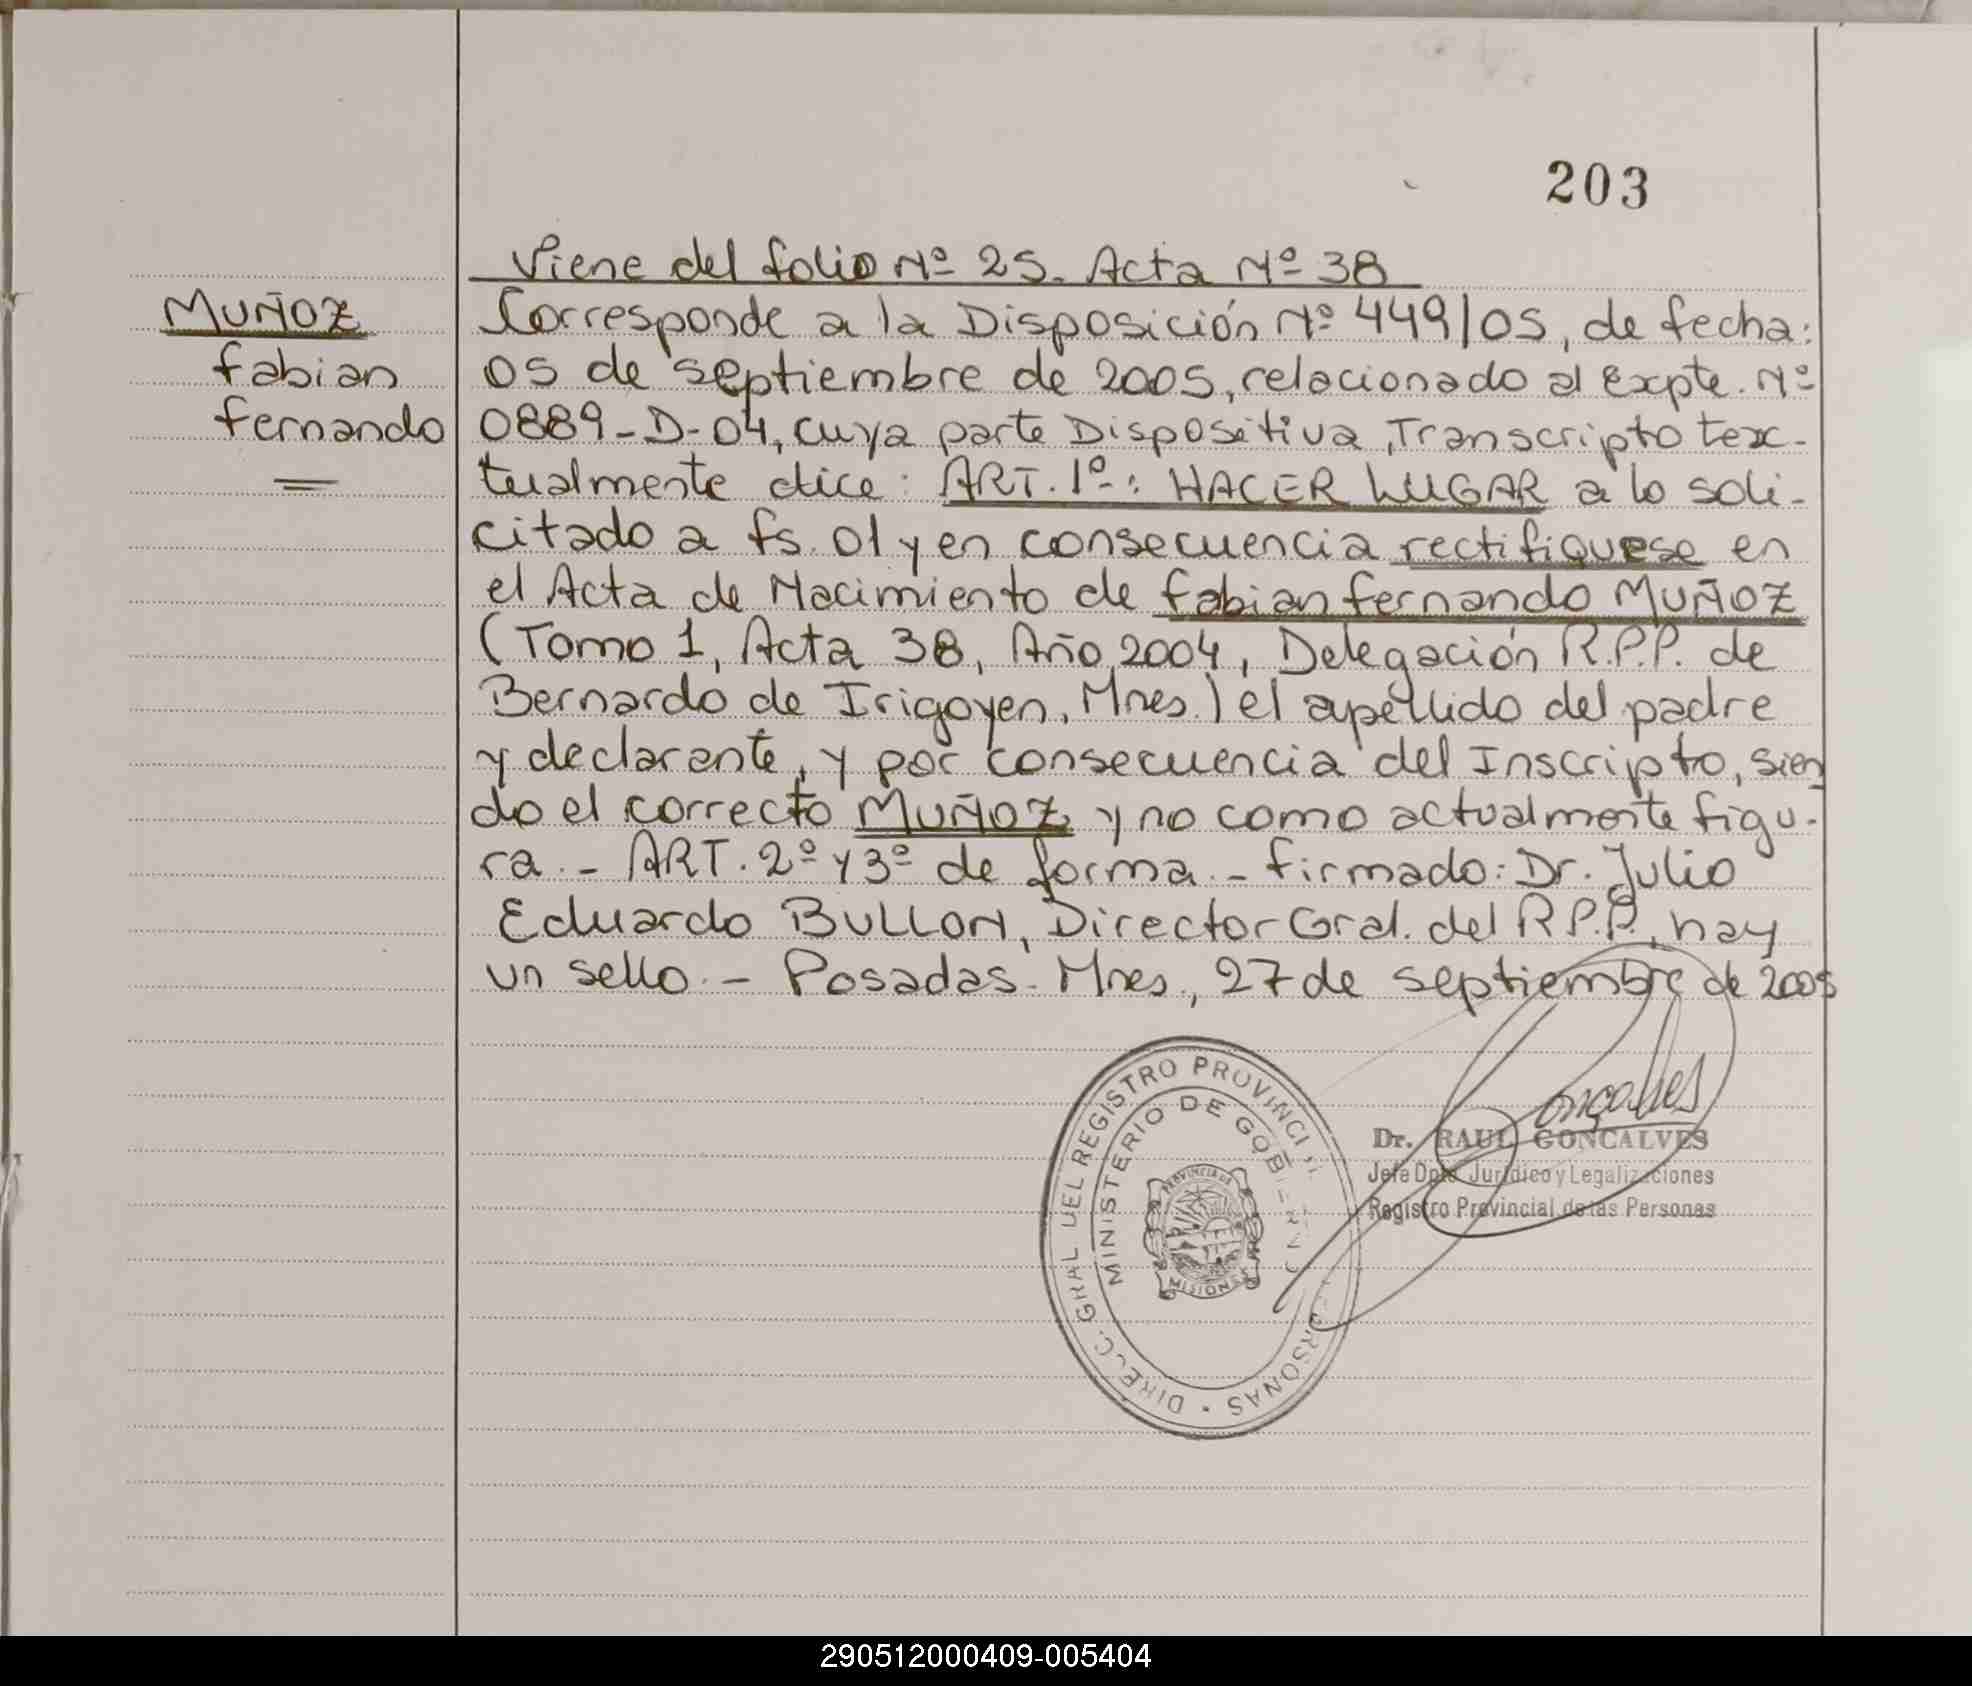 203
Viene del folio Nº 25. Acta Nº 38
MUÑOZ
Fabian
Fernando
Corresponde a la Disposición Nº 449/05, de fecha:
05 de septiembre de 2005, relacionado al Expte. Nº
0889-D-04, cuya parte Dispositiva, Transcripto tex-
tualmente dice: ART. 1º: HACER LUGAR a lo soli-
citado a fs. 01 y en consecuencia rectifiquese en
el Acta de Nacimiento de Fabian Fernando MUÑOZ
(Tomo 1, Acta 38, Año 2004, Delegación R.P.P. de
Bernardo de Irigoyen, Mnes.) el apellido del padre
y declarante, y por consecuencia del Inscripto, sien
do el correcto MUÑOZ y no como actualmente figu-
ra.- ART. 2º y 3º de forma.- Firmado: Dr. Julio
Eduardo BULLON, Director Gral. del R.P.P, hay
un sello.- Posadas. Mnes., 27 de septiembre de 2005
Dr. RAUL GONCALVES
Jefe Dpto. Jurídico y Legalizaciones
Registro Provincial de las Personas
DIREC. GRAL DEL REGISTRO PROVINCI PERSONAS
MINISTERIO DE GOBIERNO
PROVINCIA DE
MISIONES
290512000409-005404